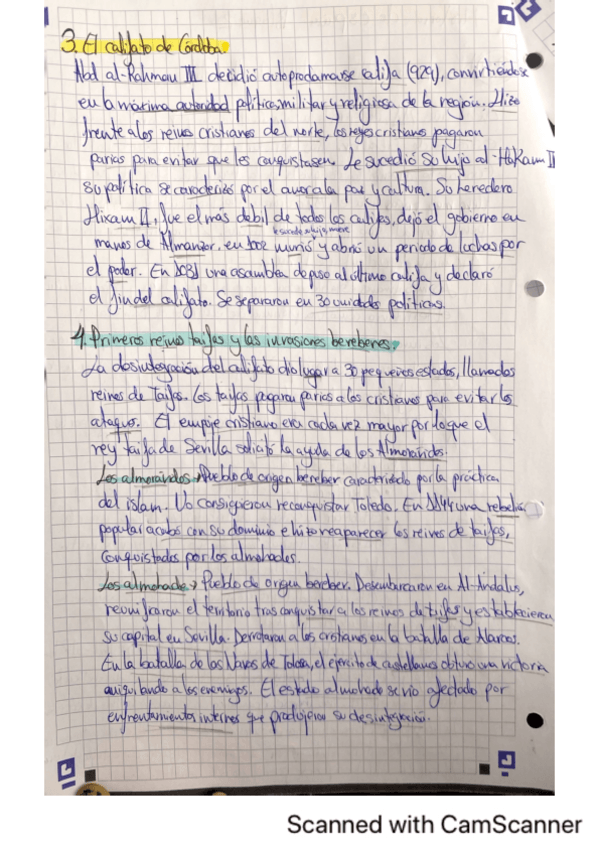 3. El califato de Córdoba
Abd al-Rahman III decidió autoproclamarse califa (929), convirtiéndose
en la máxima autoridad política, militar y religiosa de la región. Hizo
frente a los reinos cristianos del norte, los reyes cristianos pagaron
parias para evitar que les conquistasen. Le sucedió su hijo al-Hakam II
su política se caracterizó por el amor a la paz y cultura. Su heredero
Hixam II, fue el más debil de todos los califas, dejó el gobierno en
manos de Almanzor, en 1002 murió y abrió un periodo de luchas por
el poder. En 1031 una asamblea depuso al último califa y declaró
el fin del califato. Se separaron en 30 unidades políticas.
4. Primeros reinos taifas y las invasiones bereberes.
La desintegración del califato dio lugar a 30 pequeños estados, llamados
reinos de Taifas. Los taifas pagaron parias a los cristianos para evitar los
ataques. El empuje cristiano era cada vez mayor por lo que el
rey taifa de Sevilla solicitó la ayuda de los Almorávides.
Los almorávides → Pueblo de origen bereber caracterizado por la práctica
del islam. No consiguieron reconquistar Toledo. En 1144 una rebelión
popular acabó con su dominio e hizo reaparecer los reinos de taifas,
conquistados por los almohades.
Los almohade → Pueblo de origen bereber. Desembarcaron en Al-Ándalus,
reunificaron el territorio tras conquistar a los reinos de taifas y establecieron
su capital en Sevilla. Derrotaron a los cristianos en la batalla de Alarcos.
En la batalla de las Navas de Tolosa, el ejército de castellanos obtuvo una victoria
aniquilando a los enemigos. El estado almohade se vio afectado por
enfrentamientos internos que produjeron su desintegración.
Scanned with CamScanner